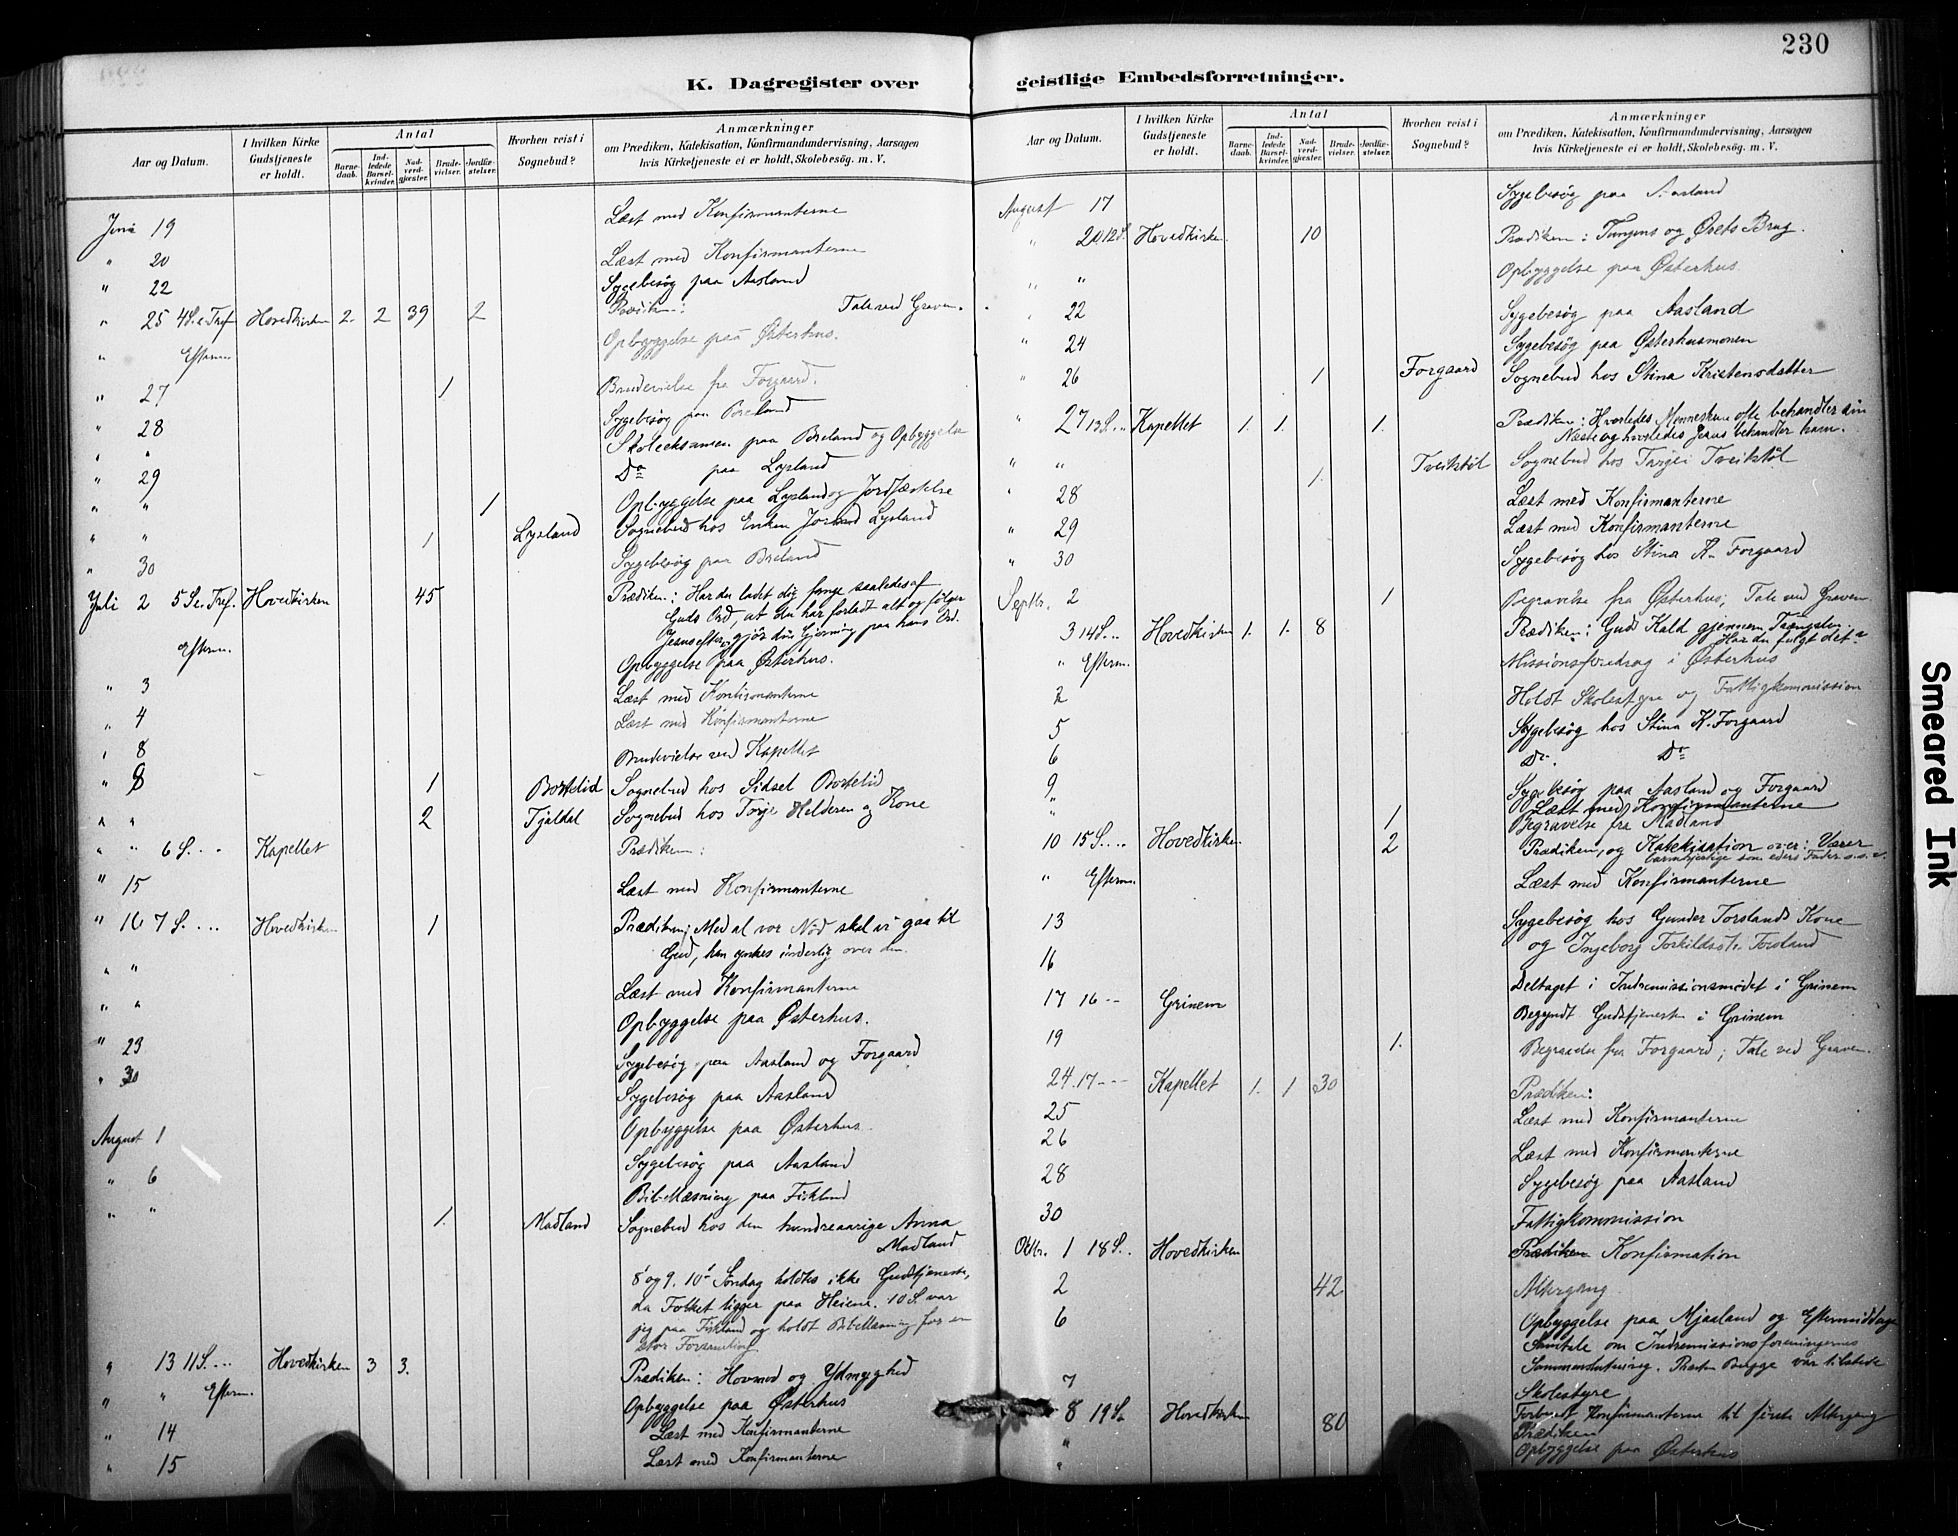 230
K. Dagregister over geistlige Embedsforretninger.
Aar og Datum. I hvilken Kirke Gudstjeneste er holdt. Antal Barnedaab. Indledede Barselkvinder. Nadverdgjæster. Brudevielser. Jordfæstelser. Hvorhen reist i Sognebud? Anmærkninger om Prædiken, Katekisation, Konfirmandundervisning, Aarsagen hvis Kirketjeneste ei er holdt, Skolebesøg. m. V.
Juni 19 Læst med Konfirmanterne
" 20 Læst med Konfirmanterne
" 22 Sygebesøg paa Aasland
" 25 4 S. e. Tref Hovedkirken 2. 2 39 2 Prædiken: Tale ved Graven.
" Efterm. Opbyggelse paa Østerhus.
" 27 1 Brudevielse fra Forgaard.
" 28 Sygebesøg paa Breland
" " Skoleeksamen paa Breland og Opbyggelse
" 29 Do paa Lysland
" " 1 Opbyggelse paa Lysland og Jordfæstelse
" " 1 Lysland Sognebud hos Enken Lysland
" 30 Sygebesøg paa Breland
Juli 2 5 S. e. Tref. Hovedkirken 45 Prædiken: Har du ladet dig fange saaledes af
Guds Ord, at du har forladt alt og følger
Jesus efter, gjør din Gjerning paa hans Ord.
Efterm. Opbyggelse paa Østerhus.
" 3 Læst med Konfirmanterne
" 4 Læst med Konfirmanterne
" 8 Brudevielse ved Kapellet
" 8 1 Bortelid Sognebud hos Sidsel Bortelid
" " 2 Tjaldal Sognebud hos Torje Helderen og Kone
" " 6 S. ... Kapellet Prædiken:
" 15 Læst med Konfirmanterne
" 16 7 S. ... Hovedkirken 1 Prædiken: Med al vor Nød skal vi gaa til
Gud, han ynkes inderlig over den.
" " Læst med Konfirmanterne
" " Opbyggelse paa Østerhus.
" 23 Sygebesøg paa Aasland og Forgaard
" 30 Sygebesøg paa Aasland
Opbyggelse paa Østerhus.
August 1 Sygebesøg paa Aasland
" 6 Bibellæsning paa Fikland
" " 1. Madland Sognebud hos den hundreaarige Anna
Madland
8' og 9. 10' Søndag holdtes ikke Gudstjeneste,
da Folket ligger paa Heiene. 10 S. var
jeg paa Fikland og holdt Bibellæsning for en
stor Forsamling
" 13 11 S. ... Hovedkirken 3 3. Prædiken: Hovmod og Ydmyghed
" " Efterm. Opbyggelse paa Østerhus
" 14 Læst med Konfirmanterne
" 15 Læst med Konfirmanterne
Aar og Datum. I hvilken Kirke Gudstjeneste er holdt. Antal Barnedaab. Indledede Barselkvinder. Nadverdgjæster. Brudevielser. Jordfæstelser. Hvorhen reist i Sognebud? Anmærkninger om Prædiken, Katekisation, Konfirmandundervisning, Aarsagen hvis Kirketjeneste ei er holdt, Skolebesøg. m. V.
August 17 Sygebesøg paa Aasland
" 20 12 S. Hovedkirken 10 Prædiken: Tungens og Ørets Brug.
" " Opbyggelse paa Østerhus.
" 22 Sygebesøg paa Aasland
" 24 Sygebesøg paa Østerhusmonen
" 26 1 Forgaard Sognebud hos Stina Kristensdatter
" 27 13 S. .. Kapellet 1. 1. 1. Prædiken: Hvorledes Mennesken ofte behandler sin
Næste og hvorledes Jesus behandler ham.
" " 1. Tveitstøl Sognebud hos Tveitstøl
" 28 Læst med Konfirmanterne
" 29 Læst med Konfirmanterne
" 30 Sygebesøg hos Stina K. Forgaard
Septbr. 2 1 Begravelse fra Østerhus; Tale ved Graven
3 14 S. .. Hovedkirken 1. 1. 8 Prædiken: Gud Kald gjennem Trængsler.
Har du fulgt det?
" Efterm. Missionsforedrag i Østerhus
2 Holdt Skolestyre og Fattigkommission
5 Sygebesøg hos Stina K. Forgaard
6 Do. Do
9 Sygebesøg paa Aasland og Forgaard
Læst med Konfirmanterne
" 1 Begravelse fra Madland
10 15 S. ... Hovedkirken 2 Prædiken, og Katekisation over: Værer
barmhjertige som eders Fader o.s.v.
" Efterm. Læst med Konfirmanterne
13 Sygebesøg hos Gunder Torslands Kone
og Ingeborg Torkildsdtr. Torsland
16 Deltaget i Indremissionsmødet i Grinem
17 16 -- Grinem Begyndt Gudstjeneste i Grinem
19 1. Begravelse fra Forgaard; Tale ved Graven.
24. 17 --- Kapellet 1. 1 30 Prædiken:
25 Læst med Konfirmanterne
26 Læst med Konfirmanterne
28 Sygebesøg paa Aasland
30 Fattigkommission
Oktbr. 1 18 S. .. Hovedkirken Prædiken Konfirmation
2 42 Altergang
6 Opbyggelse paa Mjaaland og Eftermiddags
Samtale om Indremissionsforeningernes
Sammenslutning. Presten Bugge var tilstede
7 Skolestyre
8 19 S. Hovedkirken 80 Forberedt Konfirmanterne til første Altergang
" Prædiken
" Opbyggelse paa Østerhus
Smeared Ink